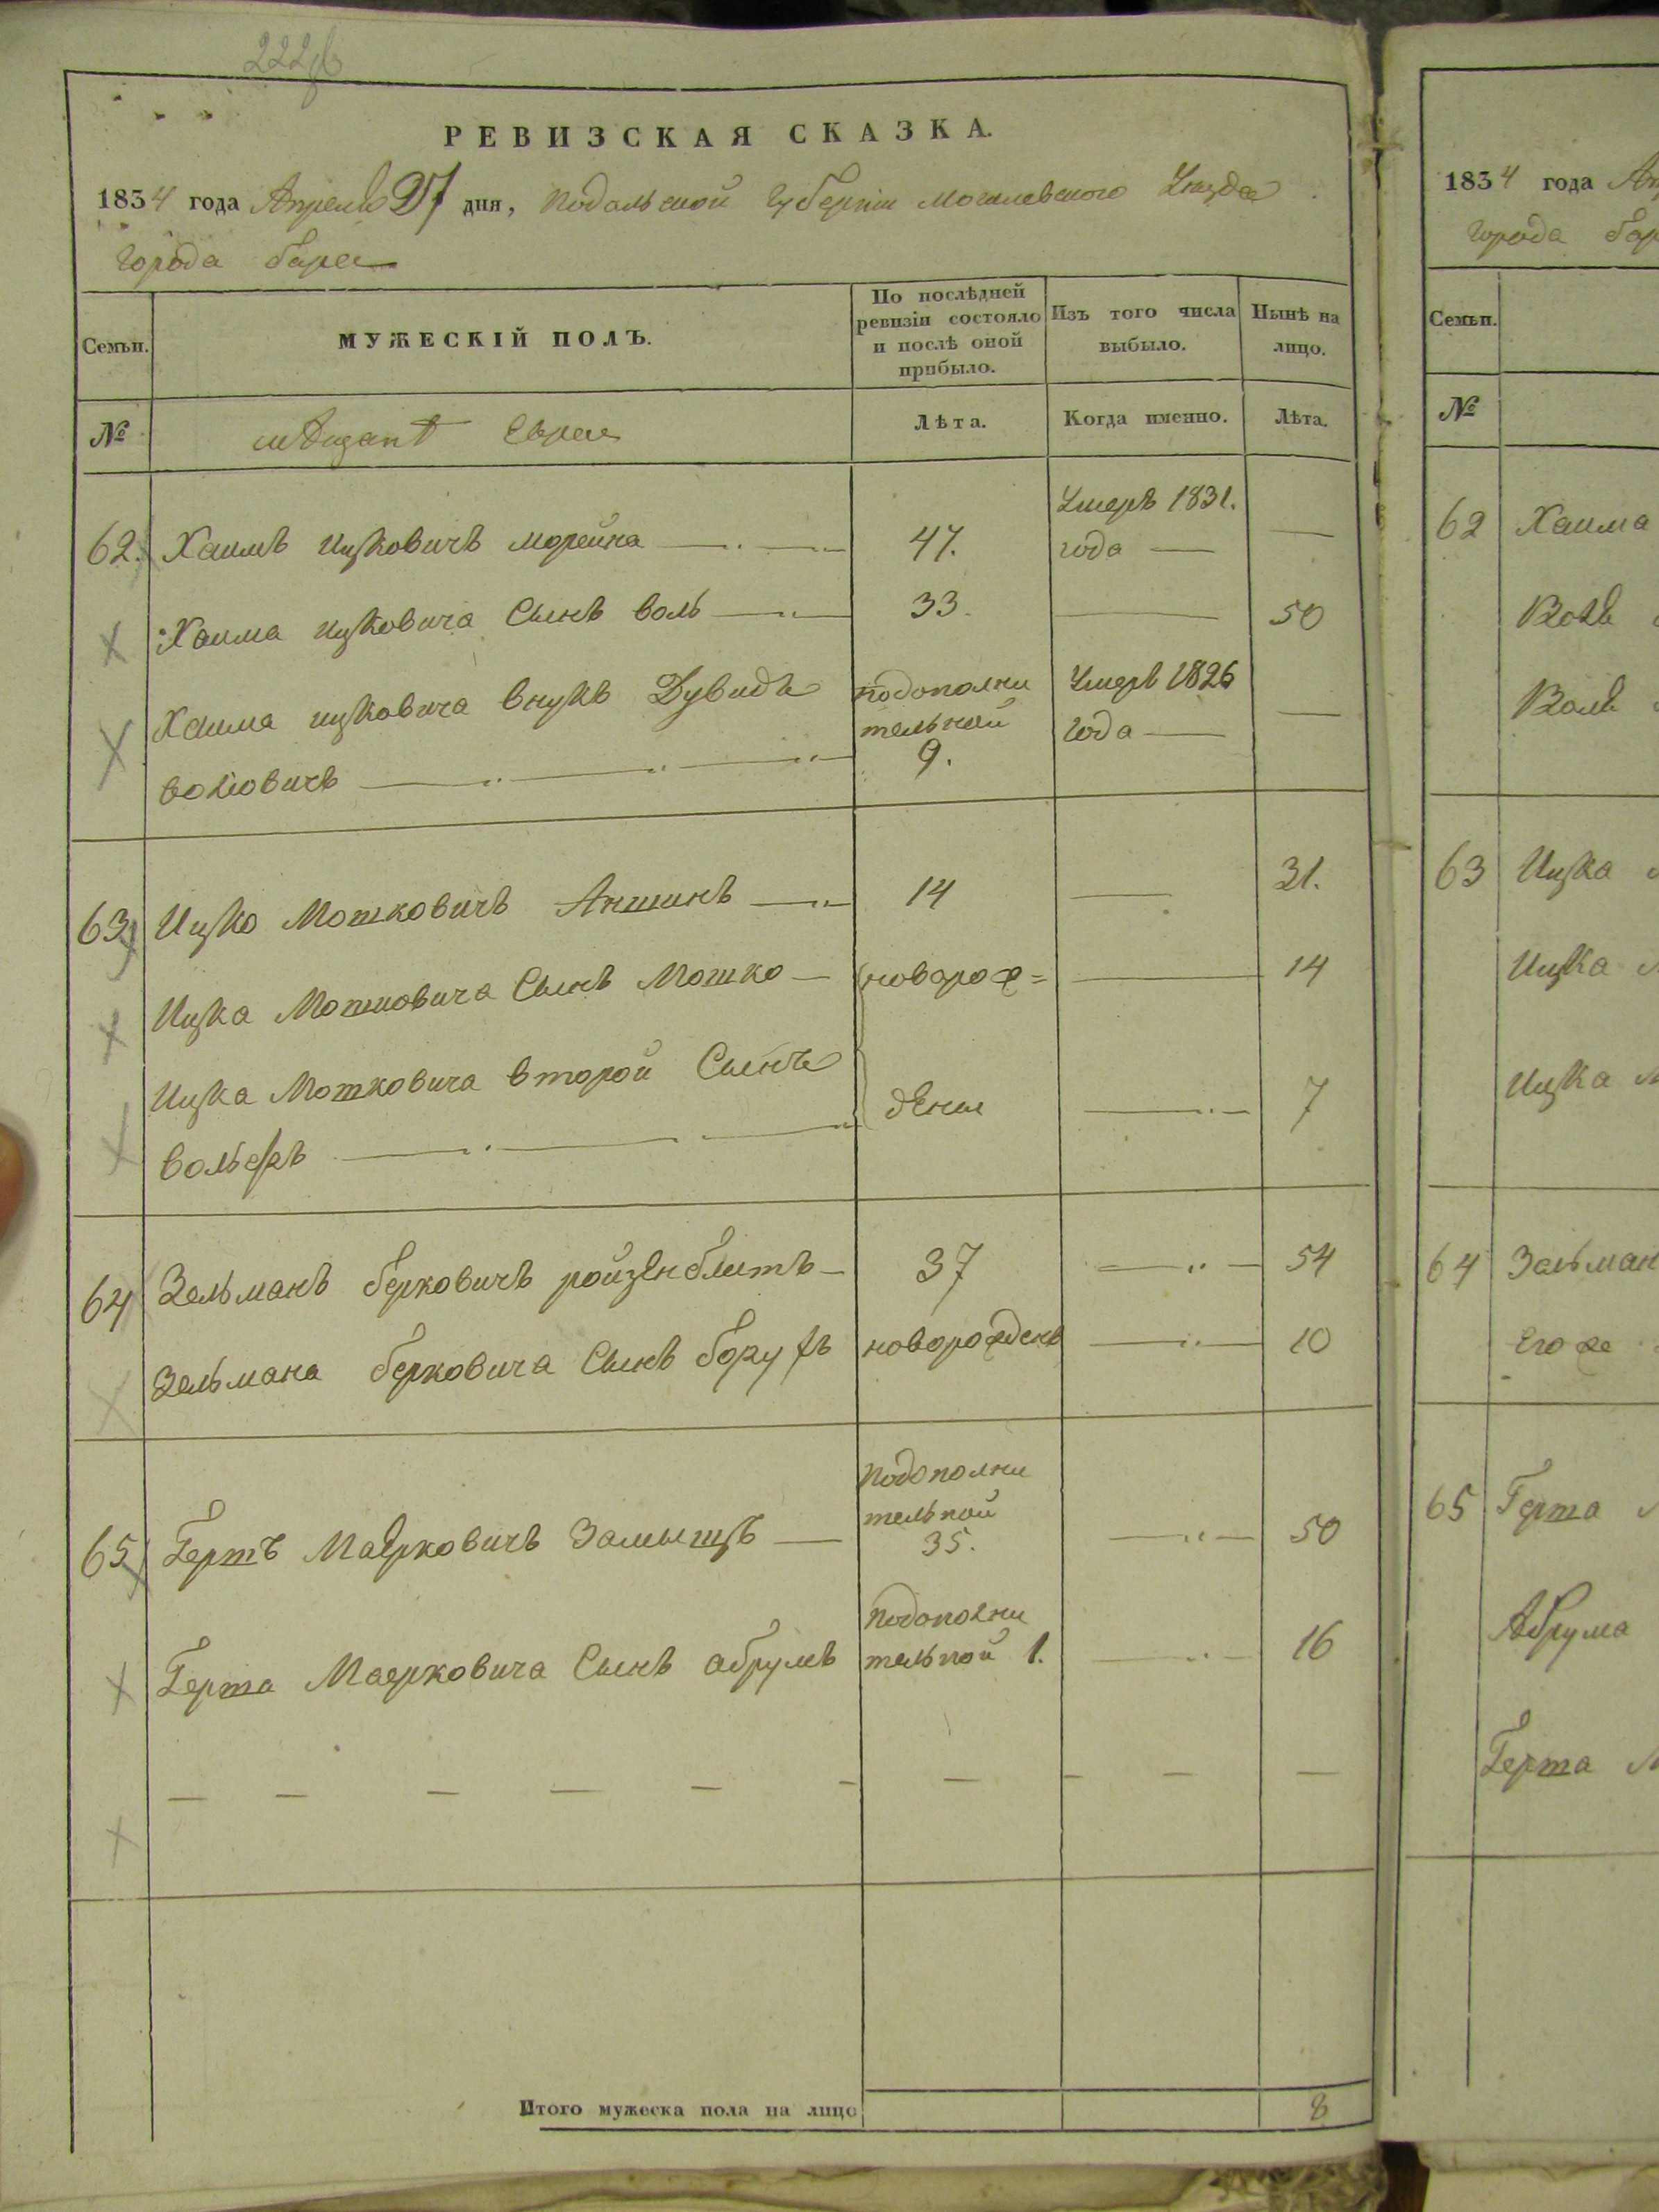 222об
РЕВИЗСКАЯ СКАЗКА.
1834 года Апреля 27 дня, Подольской Губернии Могилевского Уезда
города бара
Семьи.
МУЖЕСКІЙ ПОЛЪ.
По послѣдней ревизіи состояло и послѣ оной прибыло.
Изъ того числа выбыло.
Нынѣ на лицо.
№
мѣщане Евреи
Лѣта.
Когда именно.
Лѣта.
62. Хаимъ ицковичъ морейна 47. Умеръ 1831. года
Хаима ицковича Сынъ воль 33. 50
Хаима ицковича внукъ Дувидъ подополни Умеръ 1826
тельной года
вольовичъ 9.
63 Ицко Мотковичъ 14 31.
Ицка Мотковича Сынъ Мошко новорож= 14
Ицка Мотковича второй Сынъ
вольфъ дены 7
64 Зельманъ берковичъ ройзенблитъ 37 54
Зельмана берковича Сынъ борухъ новорожденъ 10
подополни
тельной
65 Гертъ Маерковичъ 35. 50
подополни
Герта Маерковича Сынъ абрумъ тельной 1. 16
Итого мужеска пола на лицо 8
1834 года Ап
города бар
Семьи.
№
62 Хаима
Воль
Воль
63 Ицка
Ицка
Ицка
64 Зельман
Его же
65 Герта
Абрума
Герта